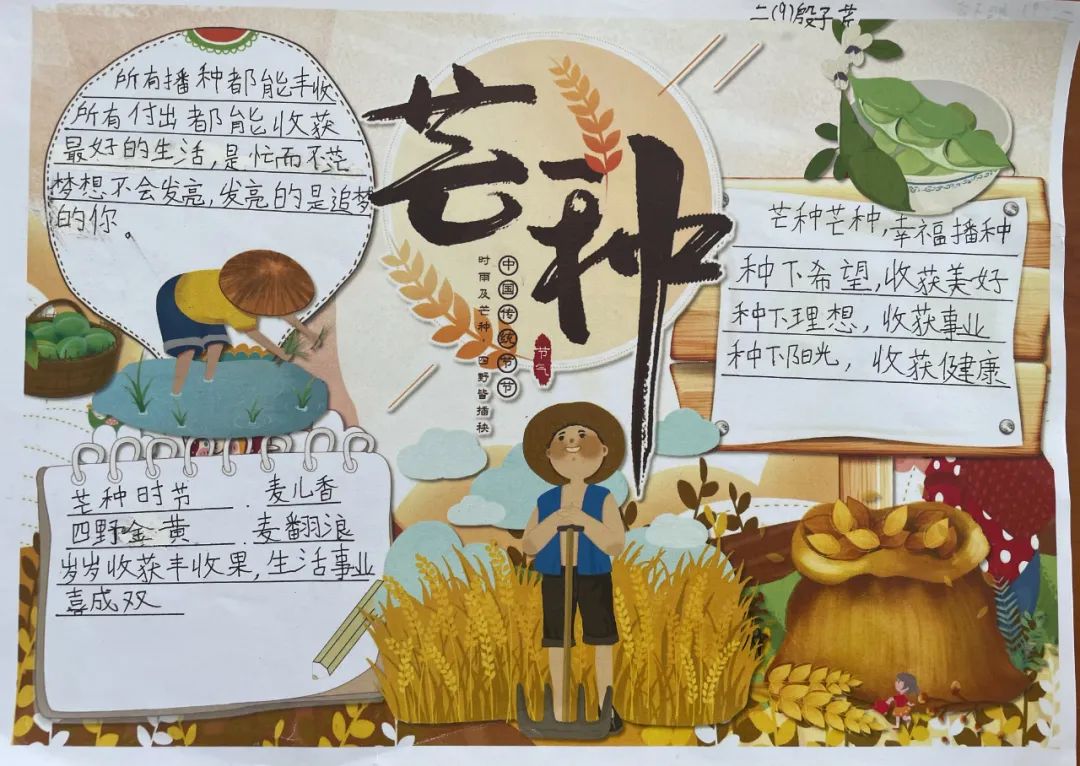 二(9)殷子芹
所有播种都能丰收
所有付出都能收获
最好的生活,是忙而不茫
梦想不会发亮,发亮的是追梦
的你。
芒种
中国传统节节
时雨及芒种·四野皆插秧
节气
芒种芒种,幸福播种
种下希望,收获美好
种下理想,收获事业
种下阳光,收获健康
芒种时节.麦儿香
四野金黄.麦翻浪
岁岁收获丰收果,生活事业
喜成双